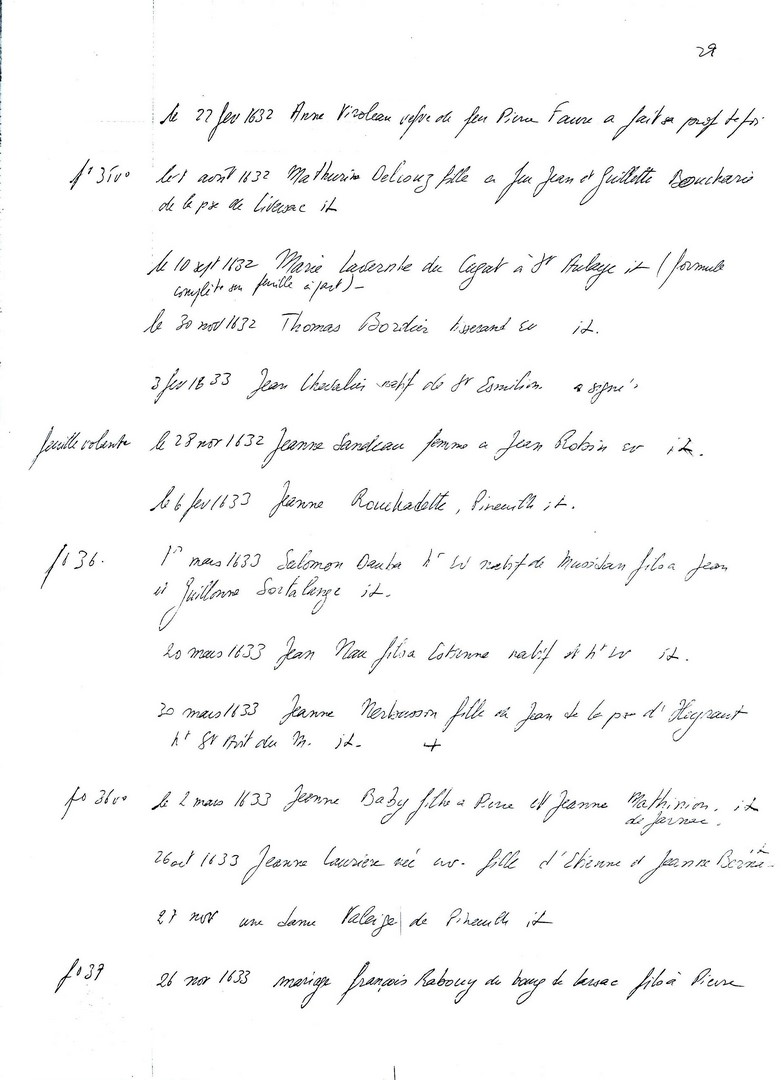 29
le 22 fev 1632 Anne Viroleau vefve de feu Pierre Faure a fait sa prof de foi
f° 35v° le 1 avril 1632 Mathurine fille a feu Jean et Guillette Boucharie
de la pse de Liversac it
le 10 sept 1632 Marie Laserote du Cagat à St Aulaye it (formule
complète sur feuille à part) -
le 30 nov 1632 Thomas Bordier tisserand it.
3 fev 1633 Jean Chevalier natif de St Emilion a signé
feuille volante le 28 nov 1632 Jeanne Sandeau femme a Jean Robin it.
le 6 fev 1633 Jeanne Rouchadette, Pineuilh it.
f° 36. 1er mars 1633 Salomon Dauba ht natif de Mussidan fils a Jean
et Guillonne Sortalange it.
20 mars 1633 Jean Nau fils a Estienne natif et ht it.
30 mars 1633 Jeanne Nerbusson fille a Jean de la pse d'Heyraut
ht St Avit du M. it. +
fo 36v° le 2 mars 1633 Jeanne Baby fille a Pierre et Jeanne Mathinion. it
de Jarnac.
26 oct 1633 Jeanne Lauriere fille d'Etienne et Jeanne it
27 nov une dame Valeige de Pineuilh it
f° 37 26 nov 1633 mariage françois Rabouy du bourg de fils à Pierre